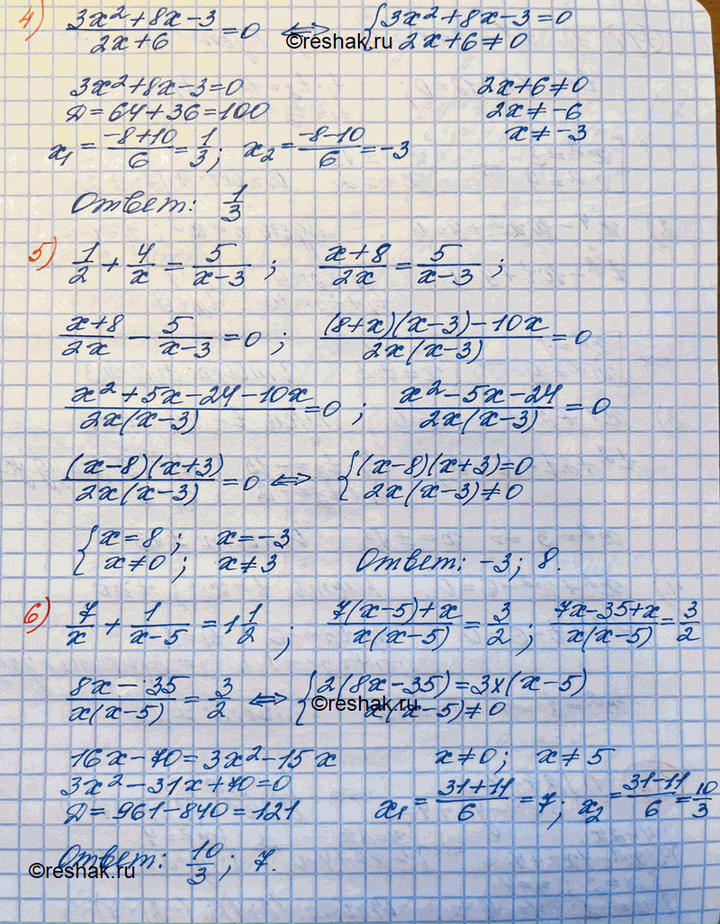 4) (3x²+8x-3)/(2x+6) = 0 ⟺ {3x²+8x-3=0
©reshak.ru
2x+6≠0
3x²+8x-3=0 2x+6≠0
D=64+36=100 2x≠-6
x₁ = (-8+10)/6 = 1/3; x₂ = (-8-10)/6 = -3 x≠-3
Ответ: 1/3
5) 1/2 + 4/x = 5/(x-3); (x+8)/(2x) = 5/(x-3);
(x+8)/(2x) - 5/(x-3) = 0; ((8+x)(x-3)-10x)/(2x(x-3)) = 0
(x²+5x-24-10x)/(2x(x-3)) = 0; (x²-5x-24)/(2x(x-3)) = 0
((x-8)(x+3))/(2x(x-3)) = 0 ⟺ {(x-8)(x+3)=0
2x(x-3)≠0
{x=8; x=-3
x≠0; x≠3 Ответ: -3; 8.
6) 7/x + 1/(x-5) = 1 1/2; (7(x-5)+x)/(x(x-5)) = 3/2; (7x-35+x)/(x(x-5)) = 3/2
(8x-35)/(x(x-5)) = 3/2 ⟺ {2(8x-35)=3x(x-5)
x(x-5)≠0
©reshak.ru
16x-70=3x²-15x x≠0; x≠5
3x²-31x+70=0
D=961-840=121 x₁ = (31+11)/6 = 7; x₂ = (31-11)/6 = 10/3
Ответ: 10/3; 7.
©reshak.ru